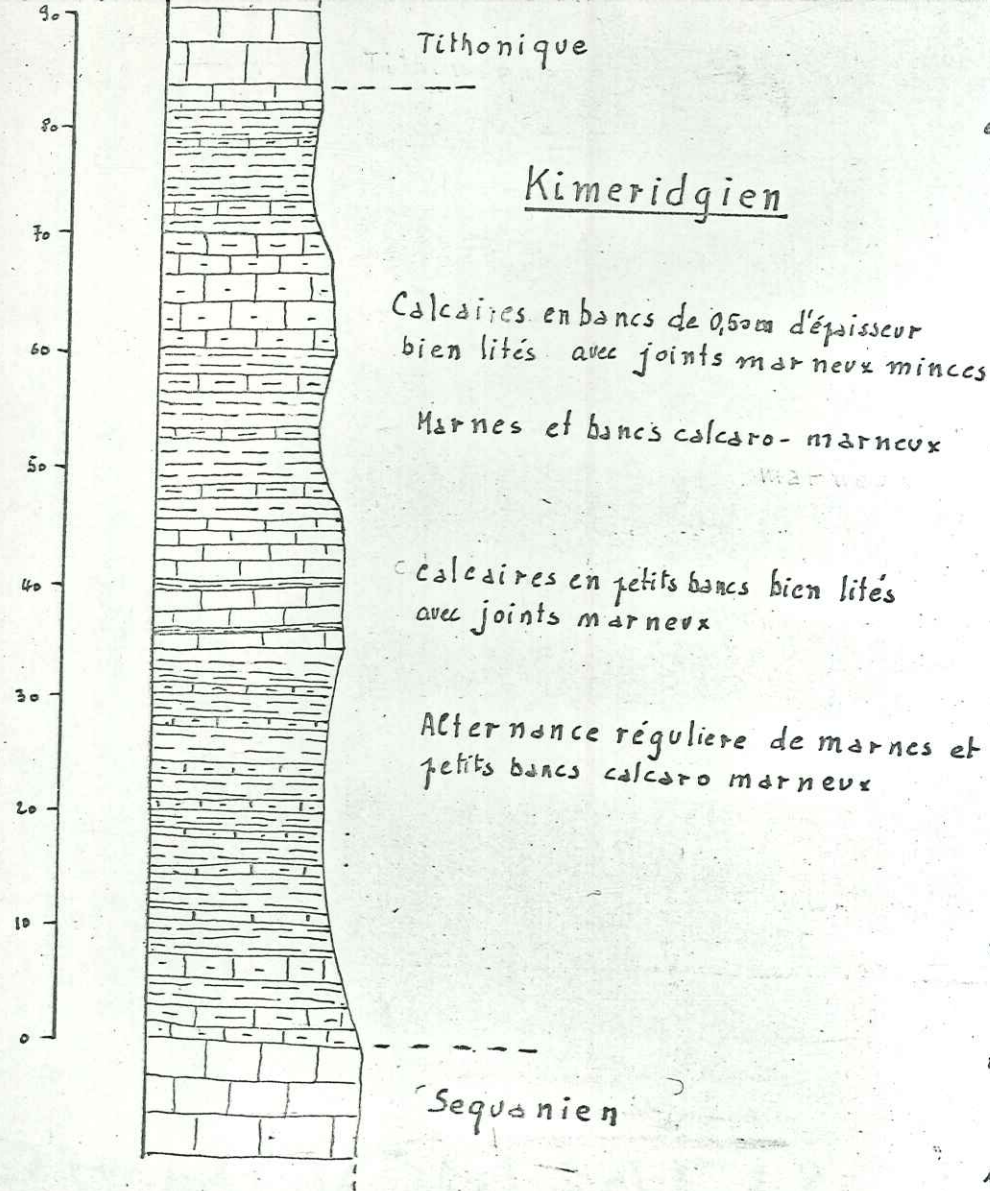 90
Tithonique
80
Kimeridgien
70
Calcaires en bancs de 0,50m d'épaisseur
60
bien lités avec joints marneux minces
Marnes et bancs calcaro-marneux
50
40
calcaires en petits bancs bien lités
avec joints marneux
30
Alternance réguliere de marnes et
petits bancs calcaro marneux
20
10
0
Sequanien